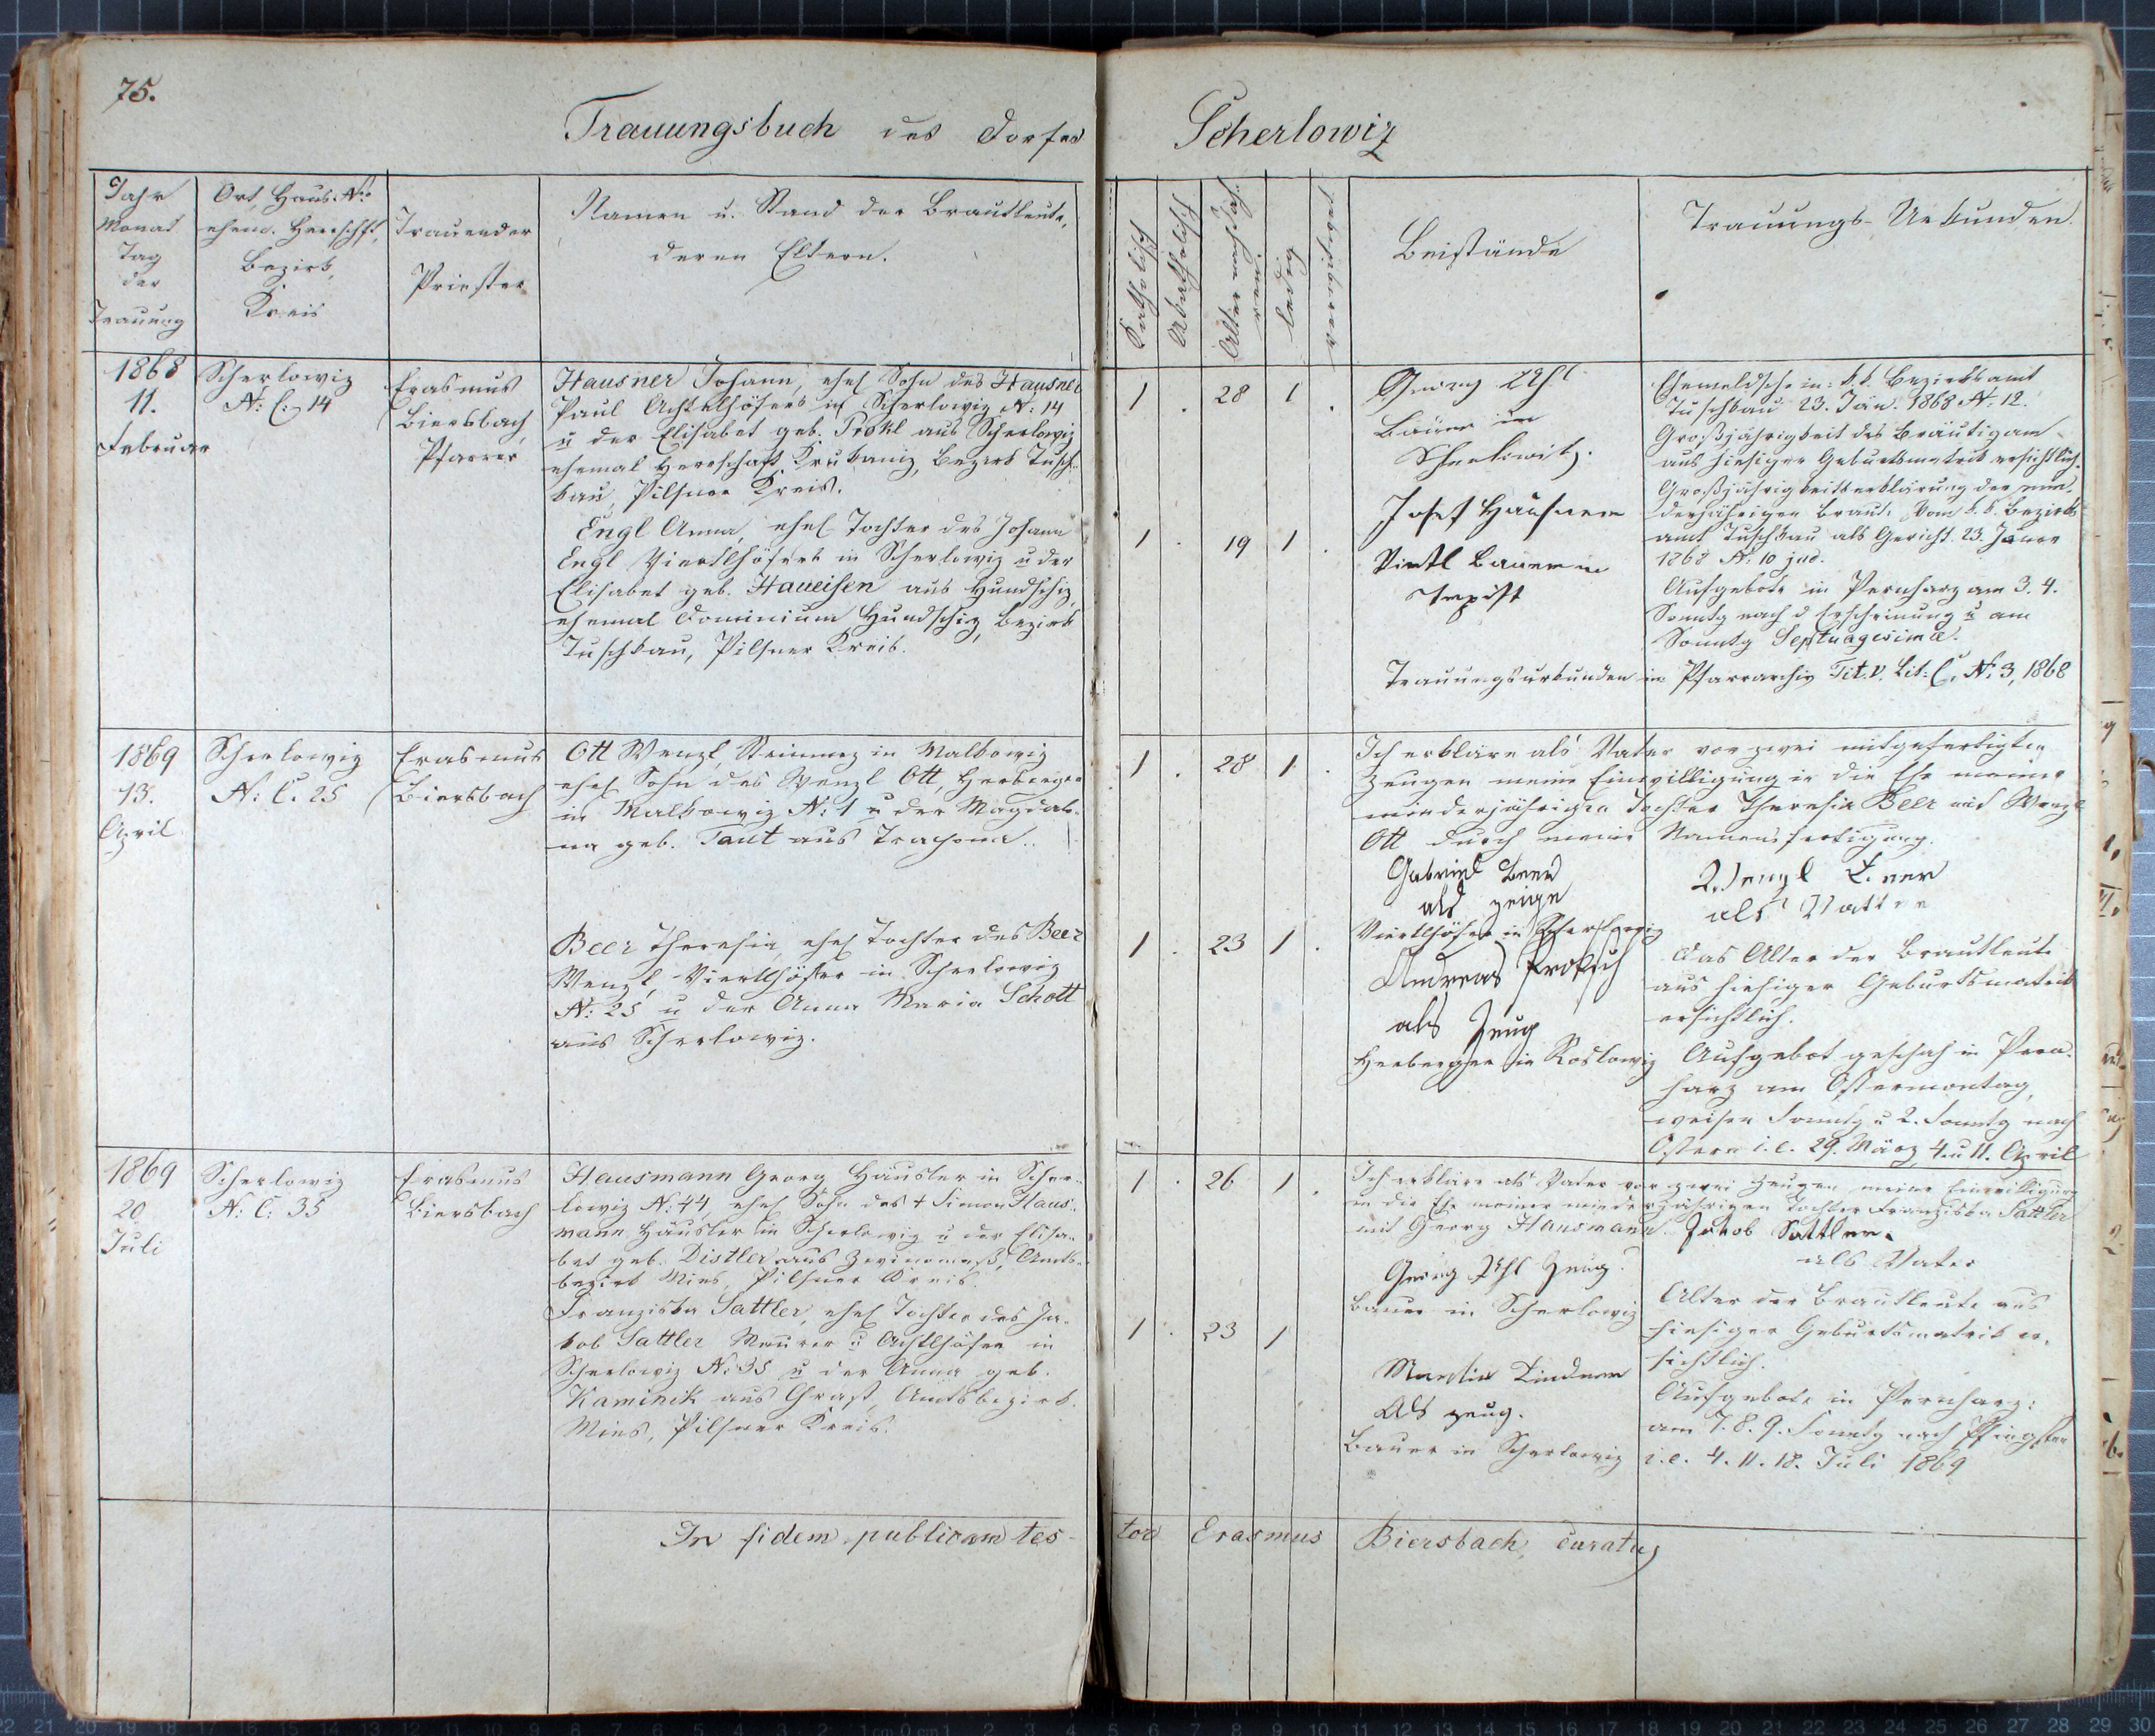 75.
Trauungsbuch des Dorfes Scherlowiz
Jahr
Monat
Tag
der
Trauung
Ort, Haus-No
ehem. Herrschft,
Bezirk,
Kreis
Trauender
Priester
Namen u. Stand der Brautleute,
deren Eltern.
Katholisch
Akatholisch
Alter nach Jahren.
ledig
verwitwet
Beistände
Trauungs-Urkunden.
1868
11.
Februar
Scherlowiz
N: C: 14
Erasmus
Biersbach,
Pfarrer
Hausner Johann, ehel Sohn des Hausner
Paul Achtelhöfers in Scherlowiz N: 14
u der Elisabet geb. Prokl aus Scherlowiz
ehemal Herrschaft Krukaniz, Bezirk Tusch-
kau, Pilsner Kreis.
Engl Anna, ehel Tochter des Johann
Engl Viertlhöfers in Scherlowiz u der
Elisabet geb. Haueisen aus Hundschiz,
ehemal Dominium Hundschiz, Bezirk
Tuschkau, Pilsner Kreis.
1 . 28 1 .
1 . 19 1 .
Georg
Bauer in
Scherlowitz.
Josef Hausner
Viertl Bauer in
Ehemeldschein: k.k. Bezirksamt
Tuschkau 23. Jän. 1868 N. 12.
Großjährigkeit des Bräutigam
aus hiesiger Geburtsmatrik ersichtlich.
Großjährigkeitserklärung der min-
derjährigen Braut: vom k.k. Bezirks
amt Tuschkau als Gericht. 23. Jänner
1868 N: 10 jud.
Aufgebote in Pernharz am 3. 4.
Sonntg nach d Erscheinung u am
Sonntg Septuagesimæ.
Trauungsurkunden in Pfarrarchiv Tit. V. Lit: C. N: 3, 1868
1869
13.
April
Scherlowiz
N: C. 25
Erasmus
Biersbach
Ott Wenzl, Steinmez in Malkowiz
ehel Sohn des Wenzl Ott, Herberger
in Malkowiz N: 1 u der Magdale-
na geb. Taut aus Trahona.
Beer Theresia, ehel Tochter des Beer
Wenzl, Viertlhöfer in Scherlowiz
N: 25 u der Anna Maria Schott
aus Scherlowiz.
1 . 28 1 .
1 . 23 1 .
Ich erkläre als Vater vor zwei mitgefertigten
Zeugen meine Einwilligung in die Ehe meiner
minderjährigen Tochter Theresia Beer mit Wenzl
Ott durch meine Namensfertigung.
Gabriel Beer
als zeige
Viertlhöfer in Scherlowiz
Andreas Proksch
als Zeug
Herberger in Koslowiz
Wenzl Beer
als Vatter
Das Alter der Brautleute
aus hiesiger Geburtsmatrik
ersichtlich.
Aufgebot geschah in Pern-
harz am Ostermontag,
weisen Sonntg u 2. Sonntg nach
Ostern i.e. 29. März, 4. u 11. April
1869
20
Juli
Scherlowiz
N: C: 35
Erasmus
Biersbach
Hausmann Georg Häusler in Scher-
lowiz N: 44, ehel Sohn des + Simon Haus-
mann Häusler in Scherlowiz u der Elisa-
bet geb. Distler aus Amts-
bezirk Mies, Pilsner Kreis
Franziska Sattler, ehel Tochter des Ja-
kob Sattler Maurer u Achtlhöfer in
Scherlowiz N: 35 u der Anna geb.
Kaminik aus Amtsbezirk
Mies, Pilsner Kreis.
1 . 26 1 .
1 . 23 1
Ich erkläre als Vater vor zwei Zeugen meine Einwilligung
in die Ehe meiner minderjährigen Tochter Franziska Sattler
mit Georg Hausmann. Jakob Sattler.
als Vater
Georg Zeug.
Bauer in Scherlowiz
Martin Lindner
Als zeug.
Bauer in Scherlowiz
Alter der Brautleute aus
hiesiger Geburtsmatrik er-
sichtlich.
Aufgebote in Pernharz:
am 7. 8. 9. Sonntg nach Pfingsten
i.e. 4. 11. 18. Juli 1869
In fidem publicam testor Erasmus Biersbach, curatus